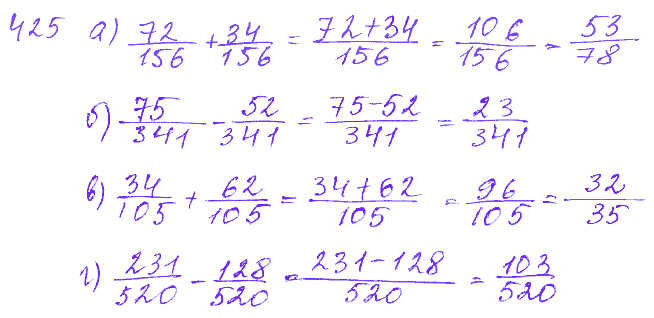 425 а) 72/156 + 34/156 = (72+34)/156 = 106/156 = 53/78
б) 75/341 - 52/341 = (75-52)/341 = 23/341
в) 34/105 + 62/105 = (34+62)/105 = 96/105 = 32/35
г) 231/520 - 128/520 = (231-128)/520 = 103/520